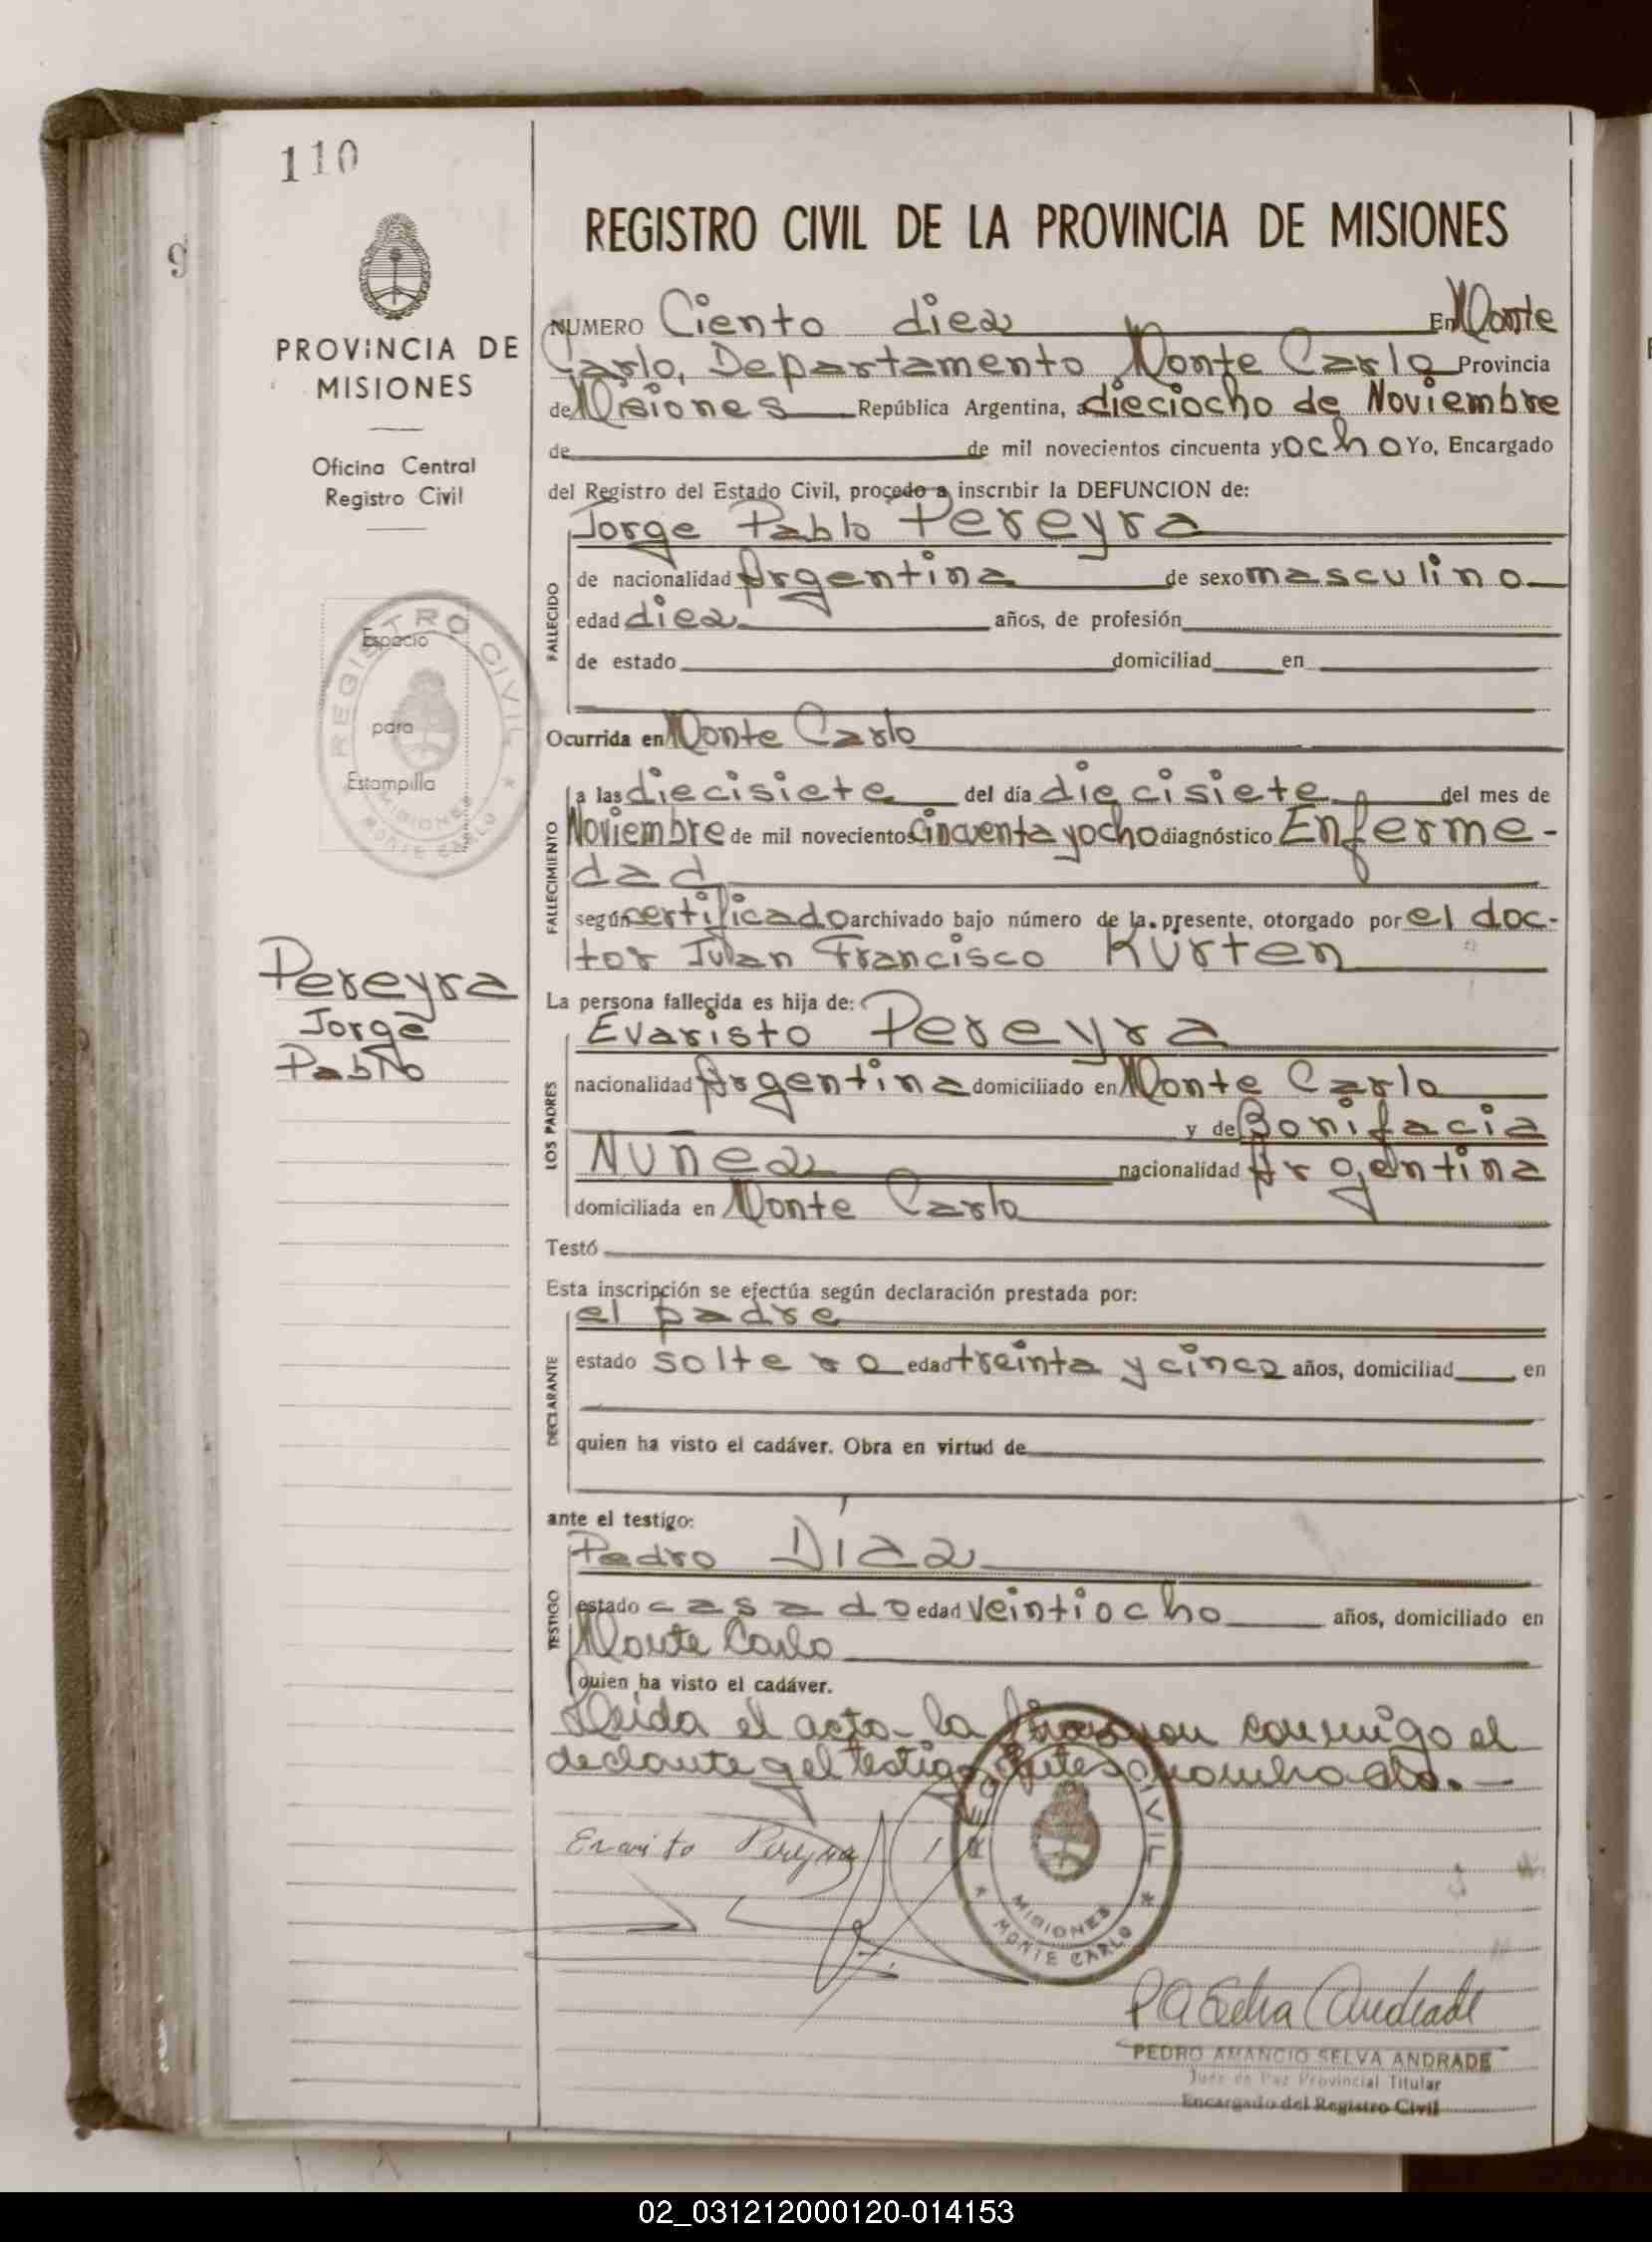 110
9
PROVINCIA DE
MISIONES
Oficina Central
Registro Civil
REGISTRO CIVIL
Espacio
para
Estampilla
MISIONES
MONTE CARLO
Pereyra
Jorge
Pablo
REGISTRO CIVIL DE LA PROVINCIA DE MISIONES
NUMERO Ciento diez En Monte
Carlo, Departamento Monte Carlo Provincia
de Misiones República Argentina, a dieciocho de Noviembre
de de mil novecientos cincuenta y ocho Yo, Encargado
del Registro del Estado Civil, procedo a inscribir la DEFUNCION de:
Jorge Pablo Pereyra
FALLECIDO
de nacionalidad Argentina de sexo masculino
edad diez años, de profesión
de estado domiciliad en
Ocurrida en Monte Carlo
FALLECIMIENTO
a las diecisiete del día diecisiete del mes de
Noviembre de mil novecientos cincuenta y ocho diagnóstico Enferme-
dad
según certificado archivado bajo número de la presente, otorgado por el doc-
tor Juan Francisco Kürten
La persona fallecida es hija de:
Evaristo Pereyra
LOS PADRES
nacionalidad Argentina domiciliado en Monte Carlo
y de Bonifacia
Nuñez nacionalidad Argentina
domiciliada en Monte Carlo
Testó
Esta inscripción se efectúa según declaración prestada por:
el padre
DECLARANTE
estado soltero edad treinta y cinco años, domiciliad en
quien ha visto el cadáver. Obra en virtud de
ante el testigo:
Pedro Díaz
TESTIGO
estado casado edad veintiocho años, domiciliado en
Monte Carlo
quien ha visto el cadáver.
Leida el acta la firmaron conmigo el
declante y el testigo antes nombrado.
Evaristo Pereyra
REGISTRO CIVIL
MISIONES
MONTE CARLO
P A Selva Andrade
PEDRO AMANCIO SELVA ANDRADE
Juez de Paz Provincial Titular
Encargado del Registro Civil
02_031212000120-014153